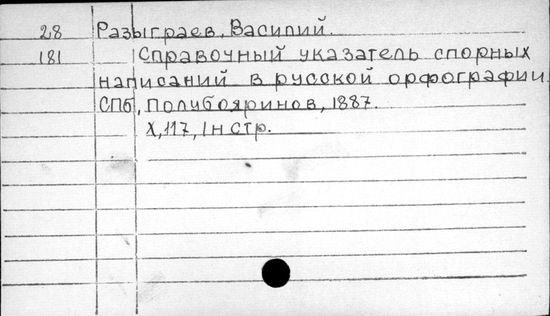 28 Разыграев, Василий.
181 Справочный указатель спорных
написаний в русской орфографии.
СПб, Полубояринов, 1887.
X, 117, 1 н стр.